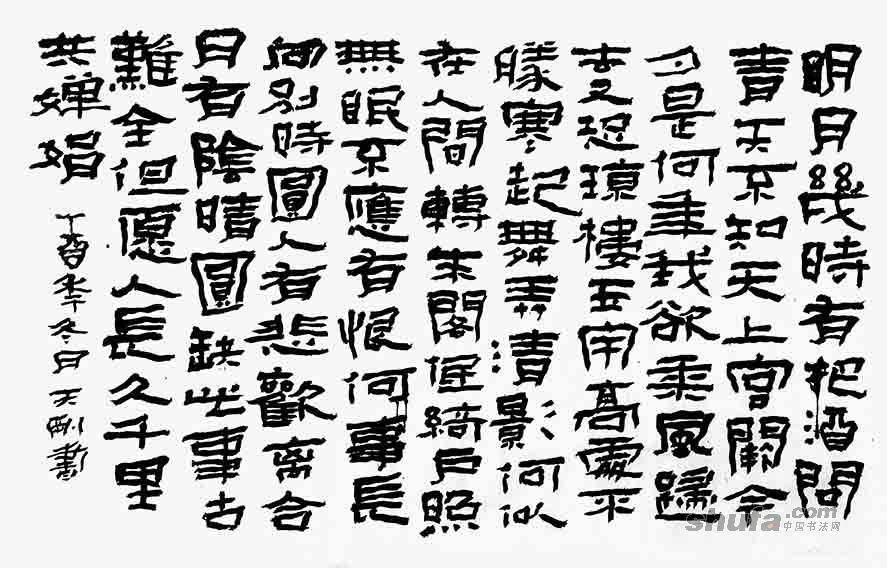 明月幾時有把酒問
青天不知天上宮闕今
夕是何年我欲乘風歸
去又恐琼樓玉宇高處不
勝寒起舞弄清影何似
在人間轉朱閣低綺戶照
無眠不應有恨何事長
向別時圓人有悲歡離合
月有陰晴圓缺此事古
難全但愿人長久千里
共婵娟
丁酉季冬月天書
shufa.com
中国书法网